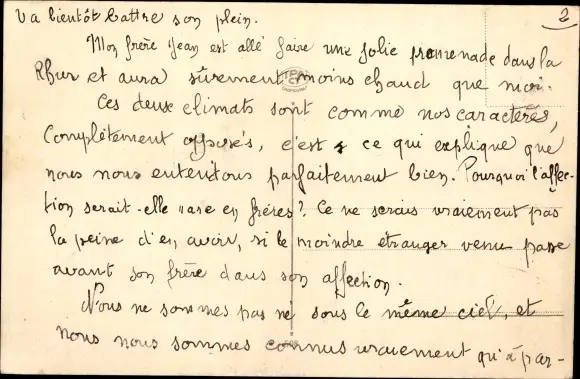 2
va bientôt battre son plein.
Mon frère Jean est allé faire une jolie promenade dans la
Rhur et aura sûrement moins chaud que moi.
Ces deux climats sont comme nos caractères,
complètement opposés, c'est ce qui explique que
nous nous entendons parfaitement bien. Pourquoi l'affec-
tion serait-elle rare en frères? Ce ne serais vraiement pas
la peine d'en avoir, si le moindre étranger venu passe
avant son frère dans son affection.
Nous ne sommes pas né sous le même ciel, et
nous nous sommes connus vraiement qu'à par-